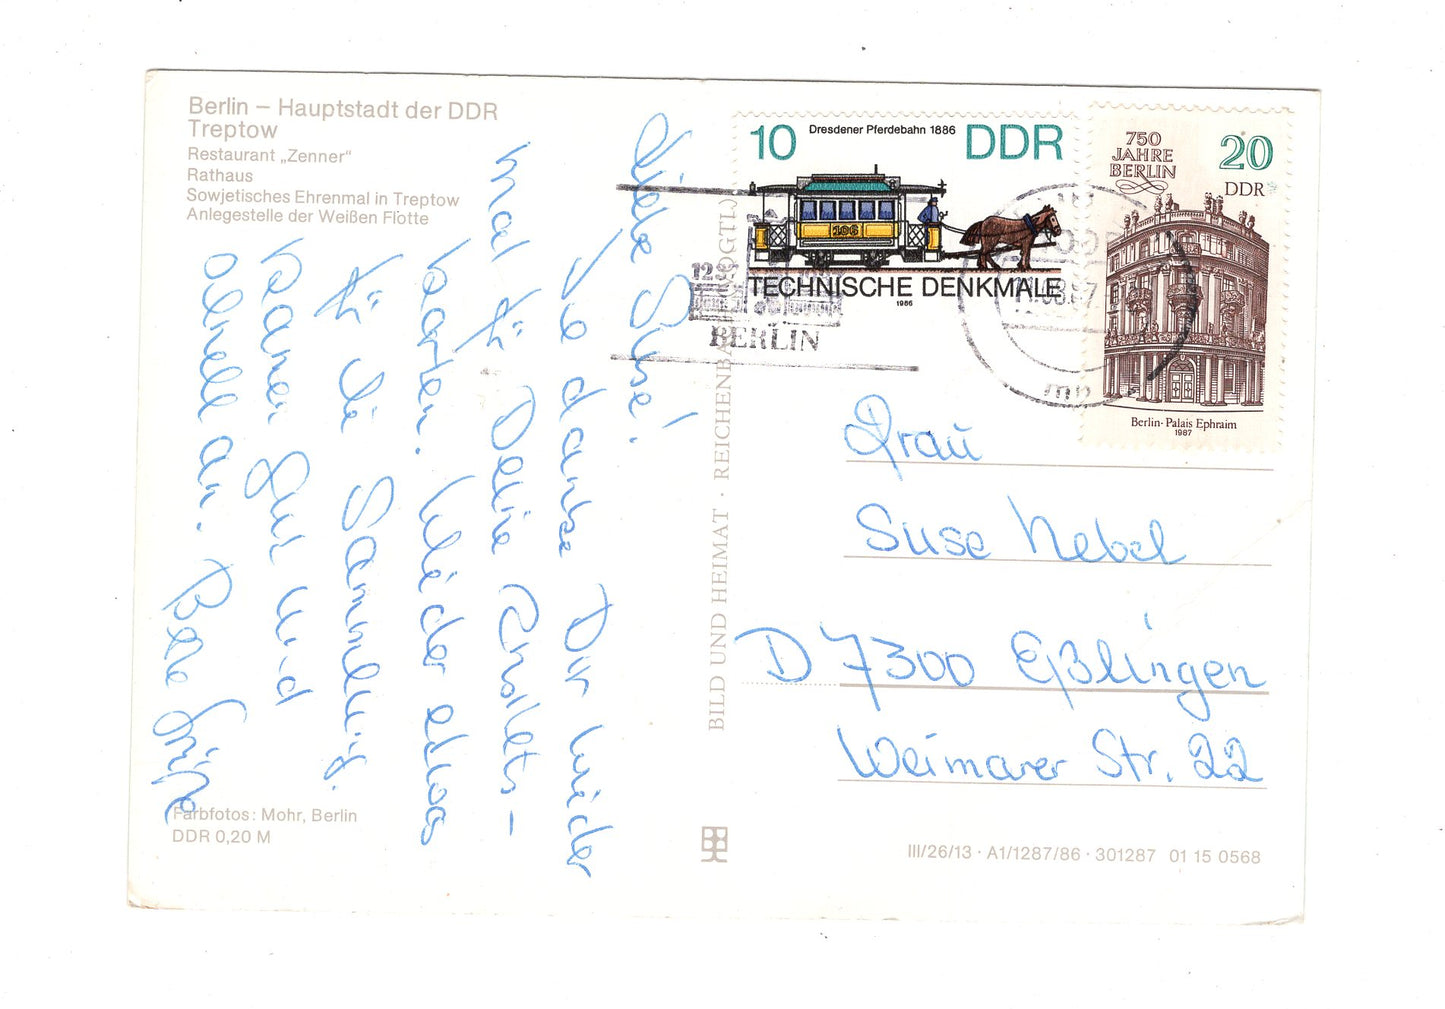 Berlin – Hauptstadt der DDR
Treptow
Restaurant „Zenner“
Rathaus
Sowjetisches Ehrenmal in Treptow
Anlegestelle der Weißen Flotte
Liebe Suse!
danke Dir wieder
mal für Deine Erhalts-
karten. Wieder etwas
für die Sammlung.
kamen gut und
schnell an. Beste Grüße
Farbfotos: Mohr, Berlin
DDR 0,20 M
BILD UND HEIMAT · REICHENBACH (VOGTL)
10 Dresdener Pferdebahn 1886 DDR
106
TECHNISCHE DENKMALE
1986
750
JAHRE
BERLIN
20
DDR
Berlin · Palais Ephraim
1987
BERLIN
Frau
Suse Nebel
D 7300 Eßlingen
Weimarer Str. 22
III/26/13 · A1/1287/86 · 301287 01 15 0568